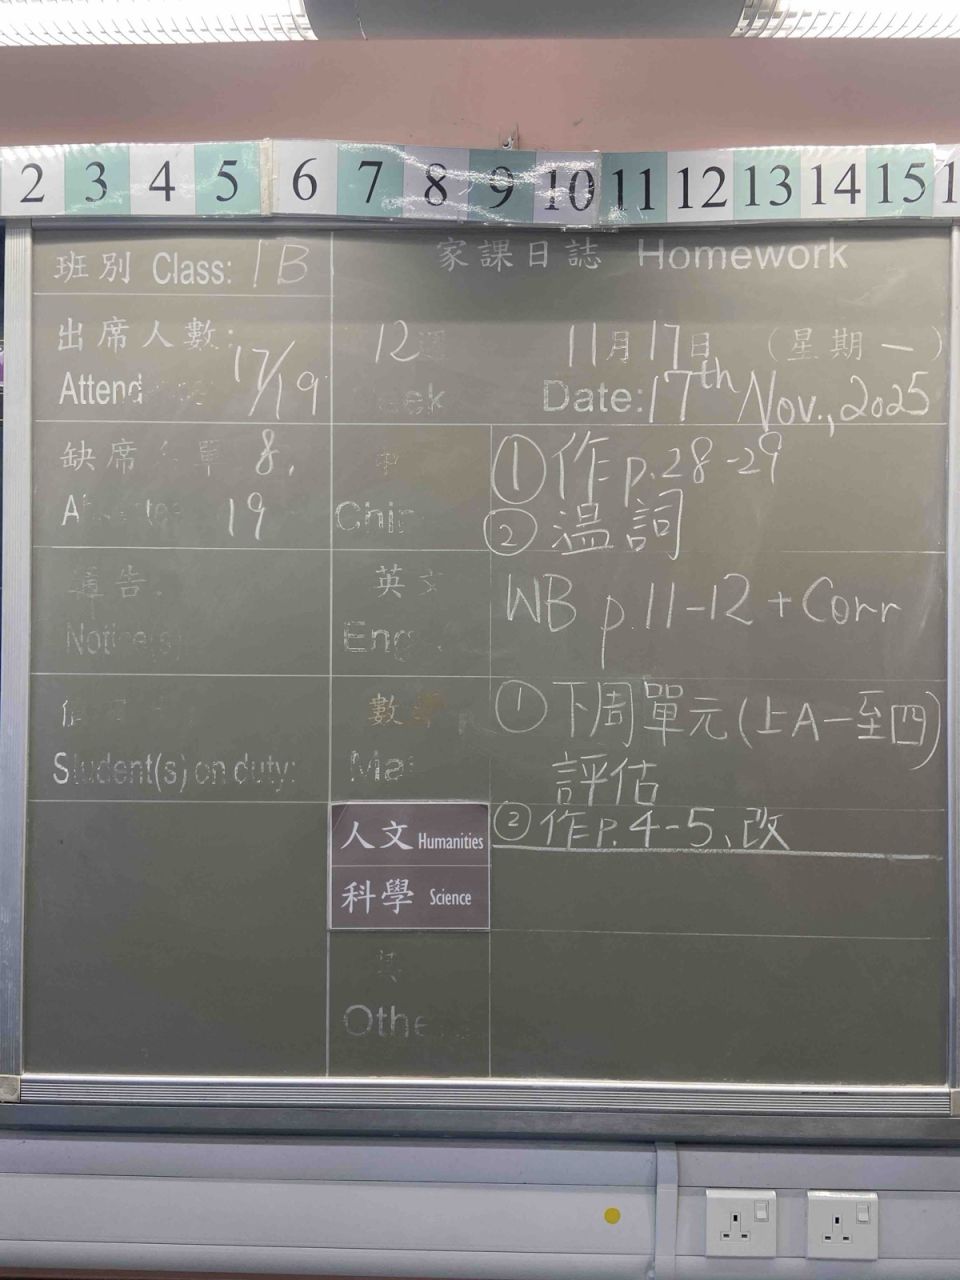 2 3 4 5 6 7 8 9 10 11 12 13 14 15
班別 Class: 1B
家課日誌 Homework
出席人數: 17/19
Attend
12週
eek
11月17日 (星期一)
Date: 17th Nov., 2025
缺席 單 8,
19
中
Chi
①作p.28-29
②温詞
告
Notice(s)
英文
Eng
WB p.11-12 + Corr
Student(s) on duty:
數學
Ma
①下周單元(上A一至四)
評估
②作p.4-5、改
人文 Humanities
科學 Science
其
Othe